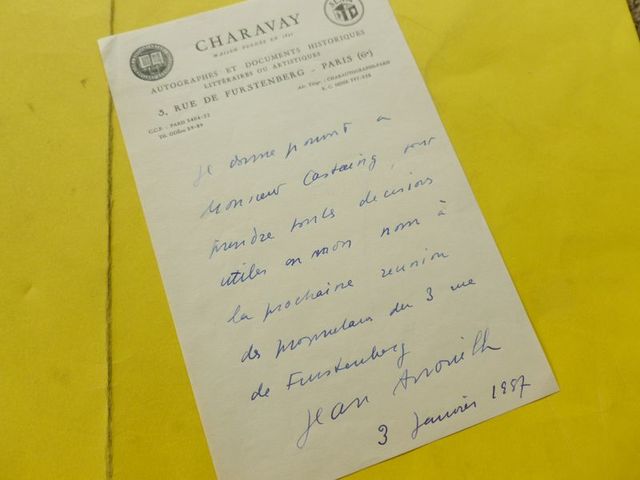 CHARAVAY
MAISON FONDÉE EN 1830
AUTOGRAPHES ET DOCUMENTS HISTORIQUES
LITTÉRAIRES OU ARTISTIQUES
3, RUE DE FURSTENBERG - PARIS (6e)
C.C.P. : PARIS 3404-22
Tél. ODÉon 59-89
Je donne pouvoir à
Monsieur Castaing, pour
prendre toutes decisions
utiles en mon nom à
la prochaine reunion
des propriétaires du 3 rue
de Furstenberg
Jean Anouilh
3 Janvier 1957